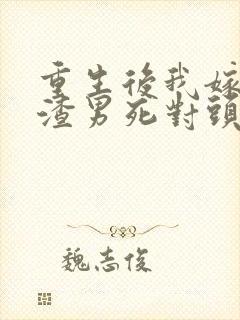 重生後我嫁
渣男死對頭
魏志俊